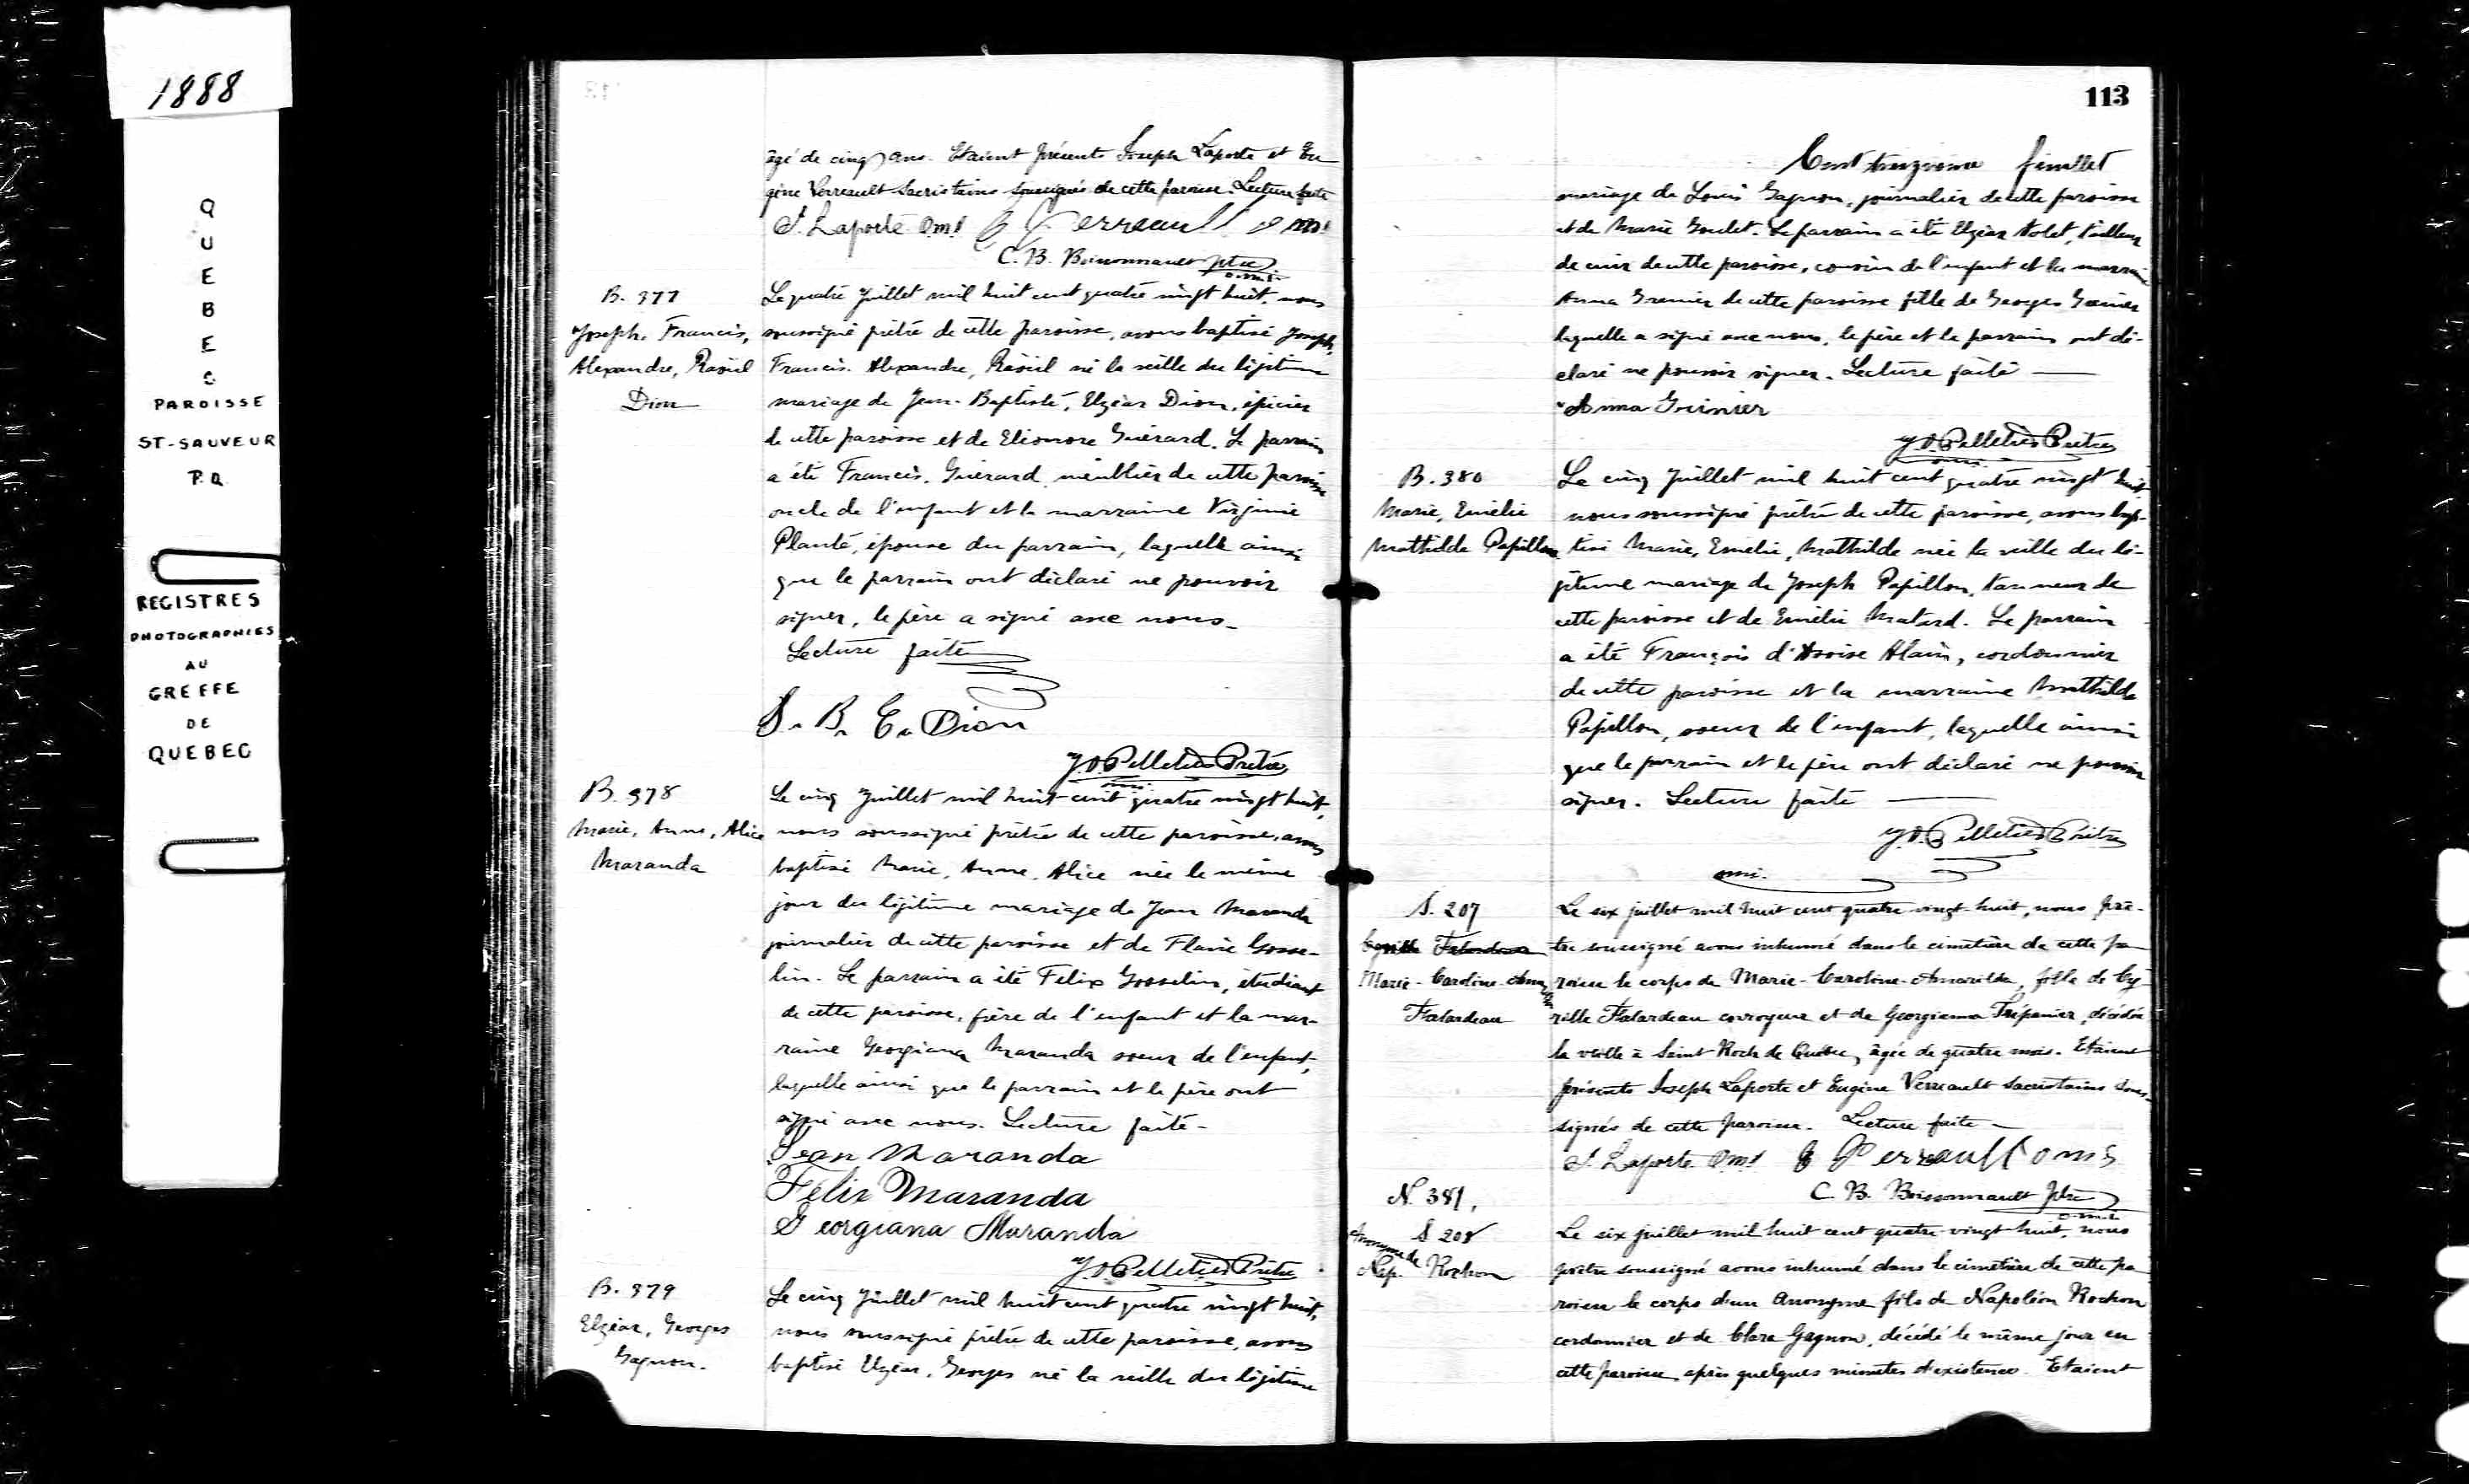 1888
QUEBEC
PAROISSE
ST-SAUVEUR
P.Q.
REGISTRES
PHOTOGRAPHIES
AU
GREFFE
DE
QUEBEC
âgé de cinq ans. Etaient présents Joseph Laporte et Eu
gène Verreault Sacristains soussignés de cette paroisse. Lecture faite
J. Laporte O.m.I E Verreault o m i
C. B. Boissonnault ptre
o.m.i.
B. 377
Joseph, Francis,
Alexandre, Raoul
Dion
Le quatre Juillet mil huit cent quatre vingt huit, nous
soussigné prêtre de cette paroisse, avons baptisé Joseph,
Francis, Alexandre, Raoul né la veille du légitime
mariage de Jean-Baptiste, Elzéar Dion, épicier
de cette paroisse et de Eléonore Guérard. Le parrain
a été Francis Guérard, meublier de cette paroisse
oncle de l'enfant et la marraine Virginie
Planté, épouse du parrain, laquelle ainsi
que le parrain ont déclaré ne pouvoir
signer, le père a signé avec nous_
Lecture faite
J. B. E. Dion
J.O. Pelletier Prêtre
omi.
B. 378
Marie, Anne, Alice
Maranda
Le cinq Juillet mil huit cent quatre vingt huit,
nous soussigné prêtre de cette paroisse, avons
baptisé Marie, Anne, Alice née le même
jour du légitime mariage de Jean Maranda
journalier de cette paroisse et de Flavie Gosse-
lin. Le parrain a été Felix Gosselin, étudiant
de cette paroisse, frère de l'enfant et la mar-
raine Georgiana Maranda soeur de l'enfant,
laquelle ainsi que le parrain et le père ont
signé avec nous. Lecture faite-
Jean Maranda
Félix Maranda
Georgiana Maranda
J.O. Pelletier Prêtre
B. 379
Elzéar, Georges
Gagnon.
Le cinq Juillet mil huit cent quatre vingt huit,
nous soussigné prêtre de cette paroisse, avons
baptisé Elzéar, Georges né la veille du légitime
113
Cent treizième feuillet
mariage de Louis Gagnon, journalier de cette paroisse
et de Marie Goulet. Le parrain a été Elzéar Nolet, tailleur
de cuir de cette paroisse, cousin de l'enfant et la marraine
Anna Grenier de cette paroisse fille de Georges Grenier
laquelle a signé avec nous, le père et le parrain ont dé-
claré ne pouvoir signer. Lecture faite
Anna Grinier
J.O. Pelletier Prêtre
omi.
B. 380
Marie, Emélie
Mathilde Papillon
Le cinq Juillet mil huit cent quatre vingt huit
nous soussigné prêtre de cette paroisse, avons bap-
tisé Marie, Emélie, Mathilde née la veille du lé-
gitime mariage de Joseph Papillon, tanneur de
cette paroisse et de Emélie Matard. Le parrain
a été François d'Assise Alain, cordonnier
de cette paroisse et la marraine Mathilde
Papillon, soeur de l'enfant, laquelle ainsi
que le parrain et le père ont déclaré ne pouvoir
signer. Lecture faite
J.O. Pelletier Prêtre
omi.
S. 207
Cyrille Falardeau
Marie-Caroline-Amarilda
Falardeau
Le six juillet mil huit cent quatre-vingt-huit, nous prê-
tre soussigné avons inhumé dans le cimetière de cette pa
roisse le corps de Marie-Caroline-Amarilda, fille de Cy-
rille Falardeau corroyeur et de Georgianna Trépanier, décédée
la veille à Saint Roch de Québec, âgée de quatre mois. Etaient
présents Joseph Laporte et Eugène Verreault Sacristains sous-
signés de cette paroisse. Lecture faite
J. Laporte O.m.I E Verreault o m i
C. B. Boissonnault Ptre
o.m.i.
N. 381,
S 208
Anonyme de
Nap. Rochon
Le six juillet mil huit cent quatre-vingt-huit, nous
prêtre soussigné avons inhumé dans le cimetière de cette pa
roisse le corps d'un Anonyme fils de Napoléon Rochon
cordonnier et de Clara Gagnon, décédé le même jour en
cette paroisse après quelques minutes d'existence. Etaient